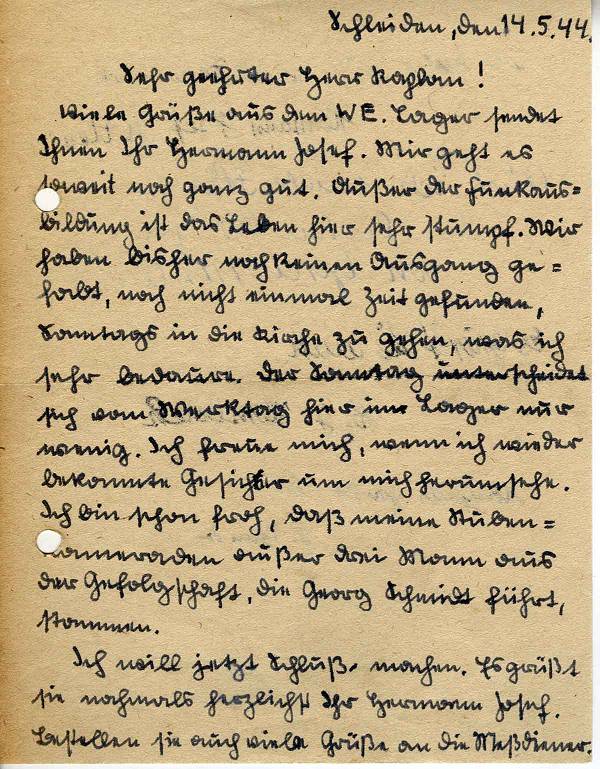 Schleiden, den 14.5.44.
Sehr geehrter Herr Kaplan!
Viele Grüße aus dem WE. Lager sendet
Ihnen Ihr Hermann Josef. Mir geht es
soweit noch ganz gut. Außer der Funkaus=
bildung ist das Leben hier sehr stumpf. Wir
haben bisher noch keinen Ausgang ge=
habt, noch nicht einmal Zeit gefunden,
Sonntags in die Kirche zu gehen, was ich
sehr bedaure. Der Sonntag unterscheidet
sich vom Werktag hier im Lager nur
wenig. Ich freue mich, wenn ich wieder
bekannte Gesichter um mich herumsehe.
Ich bin schon froh, daß meine Stuben=
kameraden außer drei Mann aus
der Gefolgschaft, die Georg Schmidt führt,
stammen.
Ich will jetzt Schluß machen. Es grüßt
sie nochmals herzlichst Ihr Hermann Josef.
Bestellen sie auch viele Grüße an die Meßdiener.